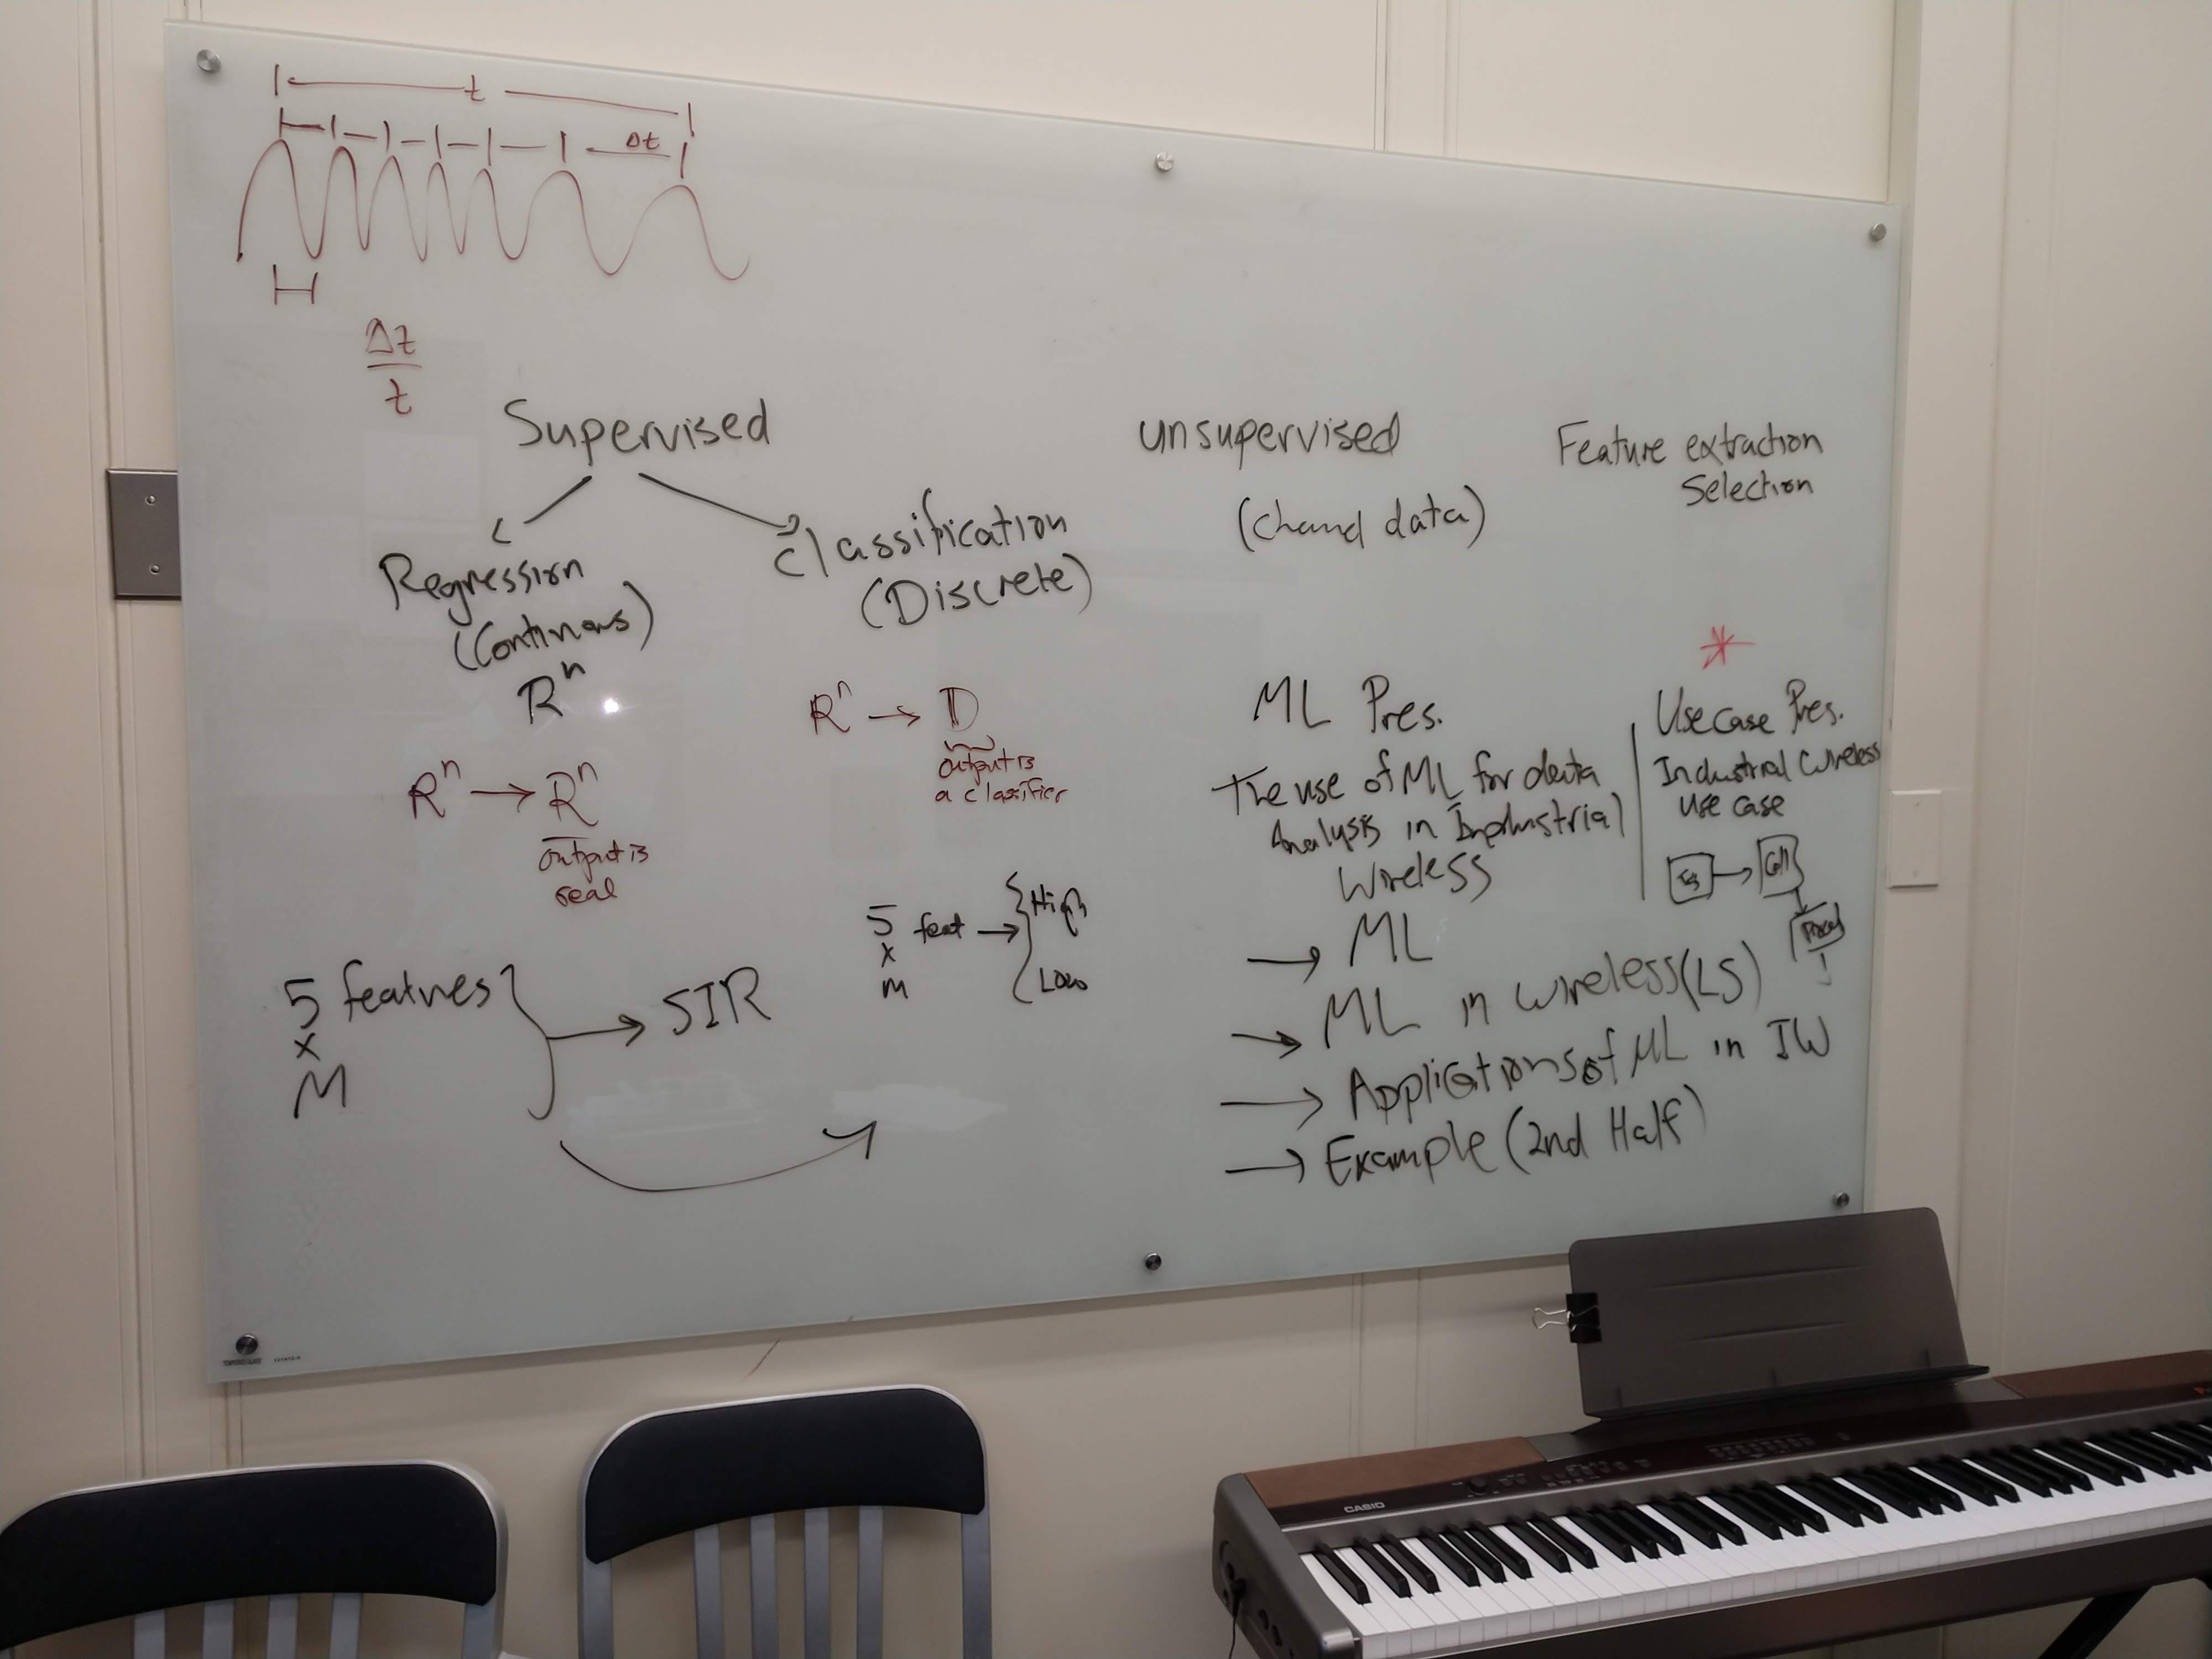 t
Δt
Δt
t
Supervised
Regression
(Continous)
Rⁿ
Rⁿ → Rⁿ
output is
real
5 features
x
M
→ SIR
Classification
(Discrete)
Rⁿ → D
output is
a classifier
5 feat → { High
x
M
Low
unsupervised
(Chanl data)
Feature extraction
Selection
ML Pres.
The use of ML for data
Analysis in Industrial
Wireless
→ ML
→ ML in wireless (LS)
→ Applications of ML in IW
→ Example (2nd Half)
*
Use case Pres.
Industrial Wireless
use case
CASIO